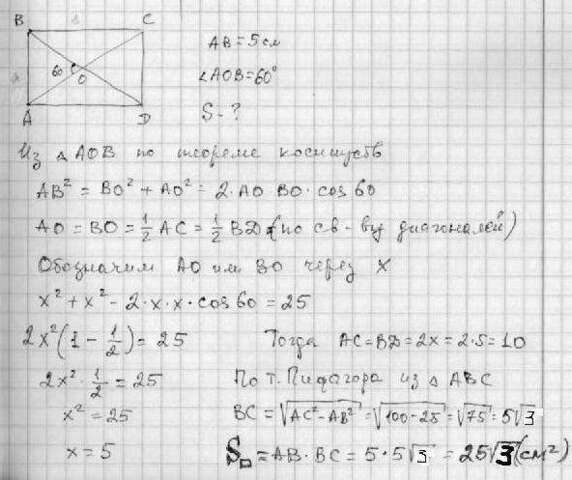 B C
60 O
A D
AB = 5 см
∠AOB = 60°
S - ?
Из △ AOB по теореме косинусов
AB² = BO² + AO² = 2 · AO BO · cos 60
AO = BO = 1/2 AC = 1/2 BD (по св-ву диагоналей)
Обозначим AO или BO через x
x² + x² - 2 · x · x · cos 60 = 25
2x² (1 - 1/2) = 25
2x² · 1/2 = 25
x² = 25
x = 5
Тогда AC = BD = 2x = 2 · 5 = 10
По т. Пифагора из △ ABC
BC = √(AC² - AB²) = √(100 - 25) = √75 = 5√3
S▭ = AB · BC = 5 · 5√3 = 25√3 (см²)